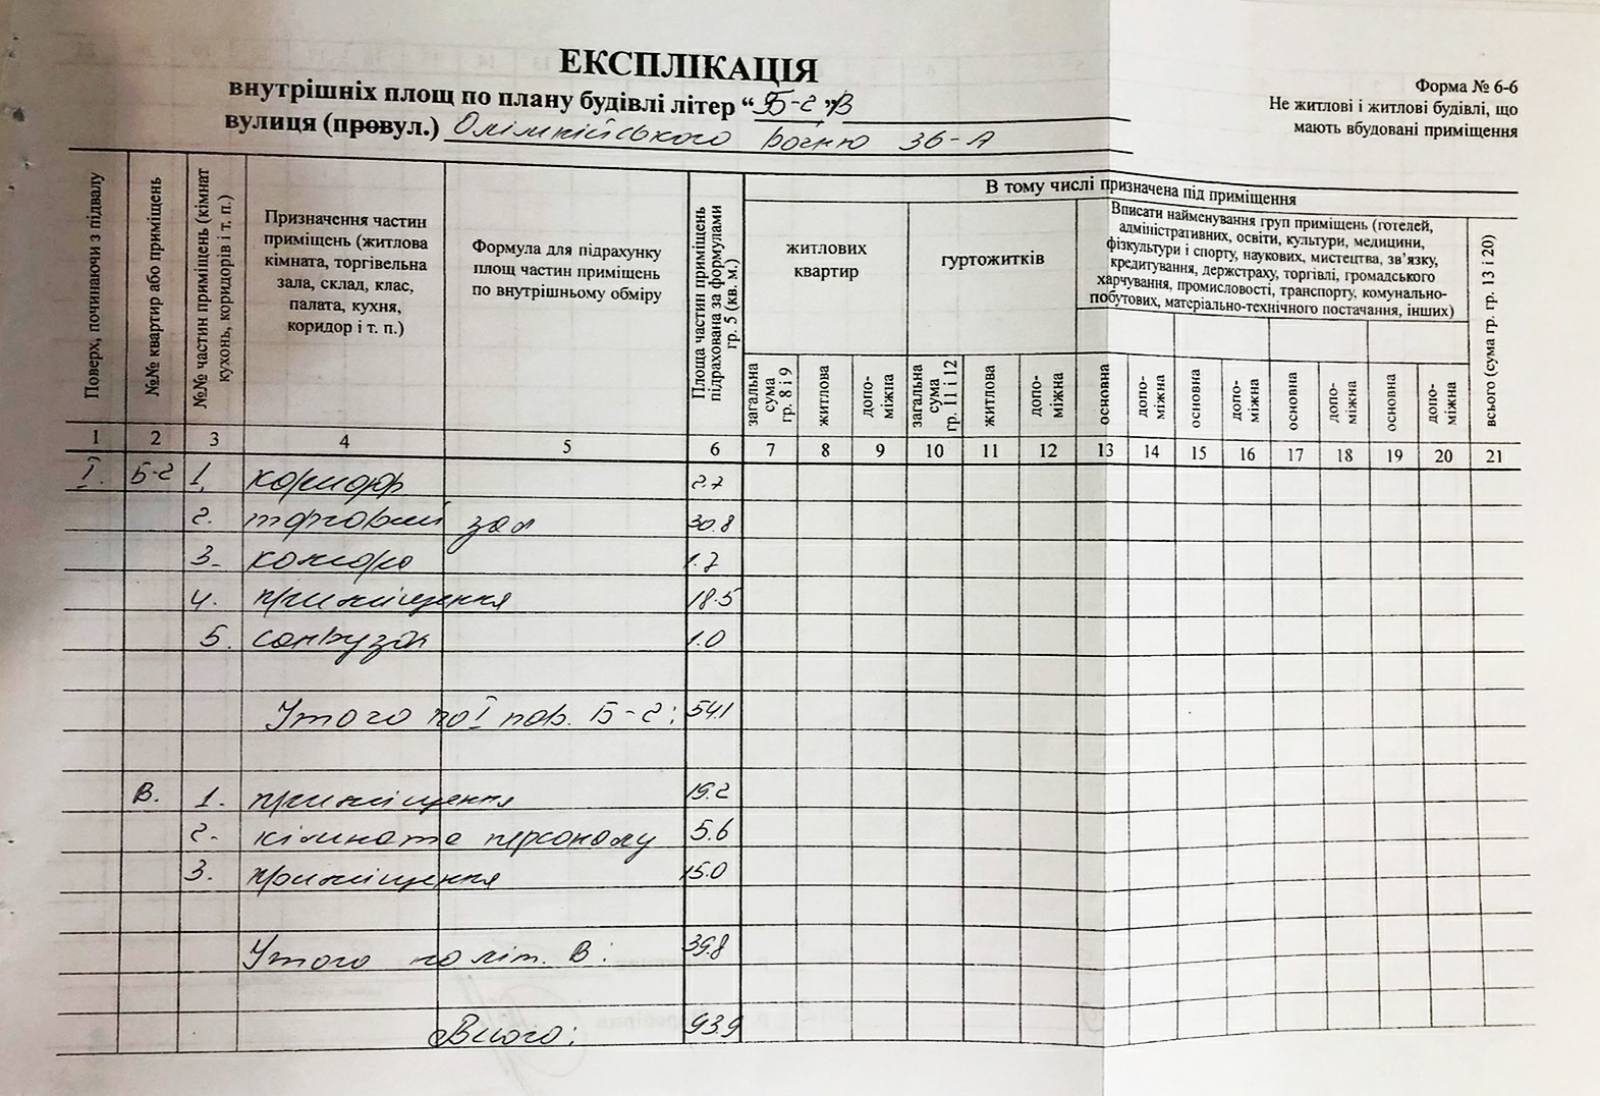 ЕКСПЛІКАЦІЯ
внутрішніх площ по плану будівлі літер “Б-2”, В
вулиця (провул.) Олімпійського вогню 36-А
Форма № 6-6
Не житлові і житлові будівлі, що
мають вбудовані приміщення
Поверх, починаючи з підвалу
№№ квартир або приміщень
№№ частин приміщень (кімнат
кухонь, коридорів і т. п.)
Призначення частин
приміщень (житлова
кімната, торгівельна
зала, склад, клас,
палата, кухня,
коридор і т. п.)
Формула для підрахунку
площ частин приміщень
по внутрішньому обміру
Площа частин приміщень
підрахована за формулами
гр. 5 (кв. м.)
В тому числі призначена під приміщення
житлових
квартир
гуртожитків
Вписати найменування груп приміщень (готелей,
адміністративних, освіти, культури, медицини,
фізкультури і спорту, наукових, мистецтва, зв’язку,
кредитування, держстраху, торгівлі, громадського
харчування, промисловості, транспорту, комунально-
побутових, матеріально-технічного постачання, інших)
всього (сума гр. гр. 13 і 20)
загальна
сума
гр. 8 і 9
житлова
допо-
міжна
загальна
сума
гр. 11 і 12
житлова
допо-
міжна
основна
допо-
міжна
основна
допо-
міжна
основна
допо-
міжна
основна
допо-
міжна
1 2 3 4 5 6 7 8 9 10 11 12 13 14 15 16 17 18 19 20 21
I. Б-2 1. коридор 2.7
2. торговий зал 30.8
3. комора 1.7
4. приміщення 18.5
5. санвузол 1.0
Утого по I пов. Б-2: 54.1
В. 1. приміщення 19.2
2. кімната персоналу 5.6
3. приміщення 15.0
Утого по літ. В: 39.8
Всього: 93.9